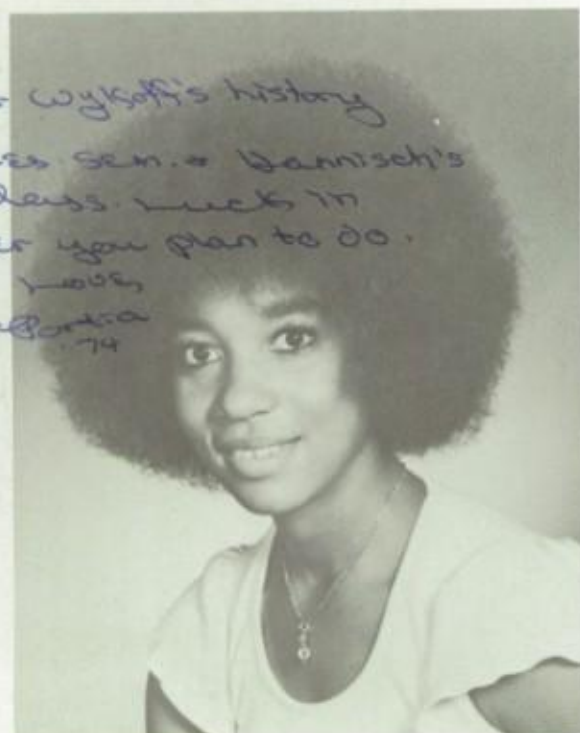 Wykoff's history
sem. & Hannisch's
Luck in
you plan to do.
Love,
Portia
'74